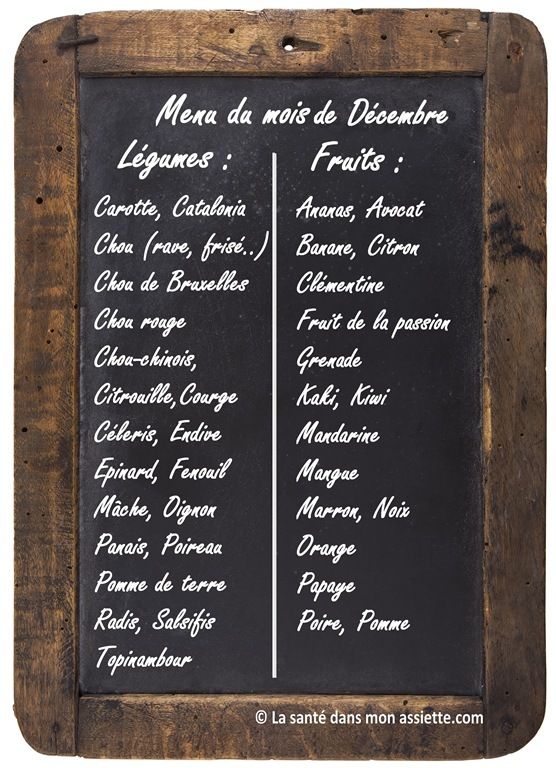 Menu du mois de Décembre
Légumes :
Carotte, Catalonia
Chou (rave, frisé..)
Chou de Bruxelles
Chou rouge
Chou-chinois,
Citrouille,Courge
Céleris, Endive
Epinard, Fenouil
Mâche, Oignon
Panais, Poireau
Pomme de terre
Radis, Salsifis
Topinambour
Fruits :
Ananas, Avocat
Banane, Citron
Clémentine
Fruit de la passion
Grenade
Kaki, Kiwi
Mandarine
Mangue
Marron, Noix
Orange
Papaye
Poire, Pomme
© La santé dans mon assiette.com